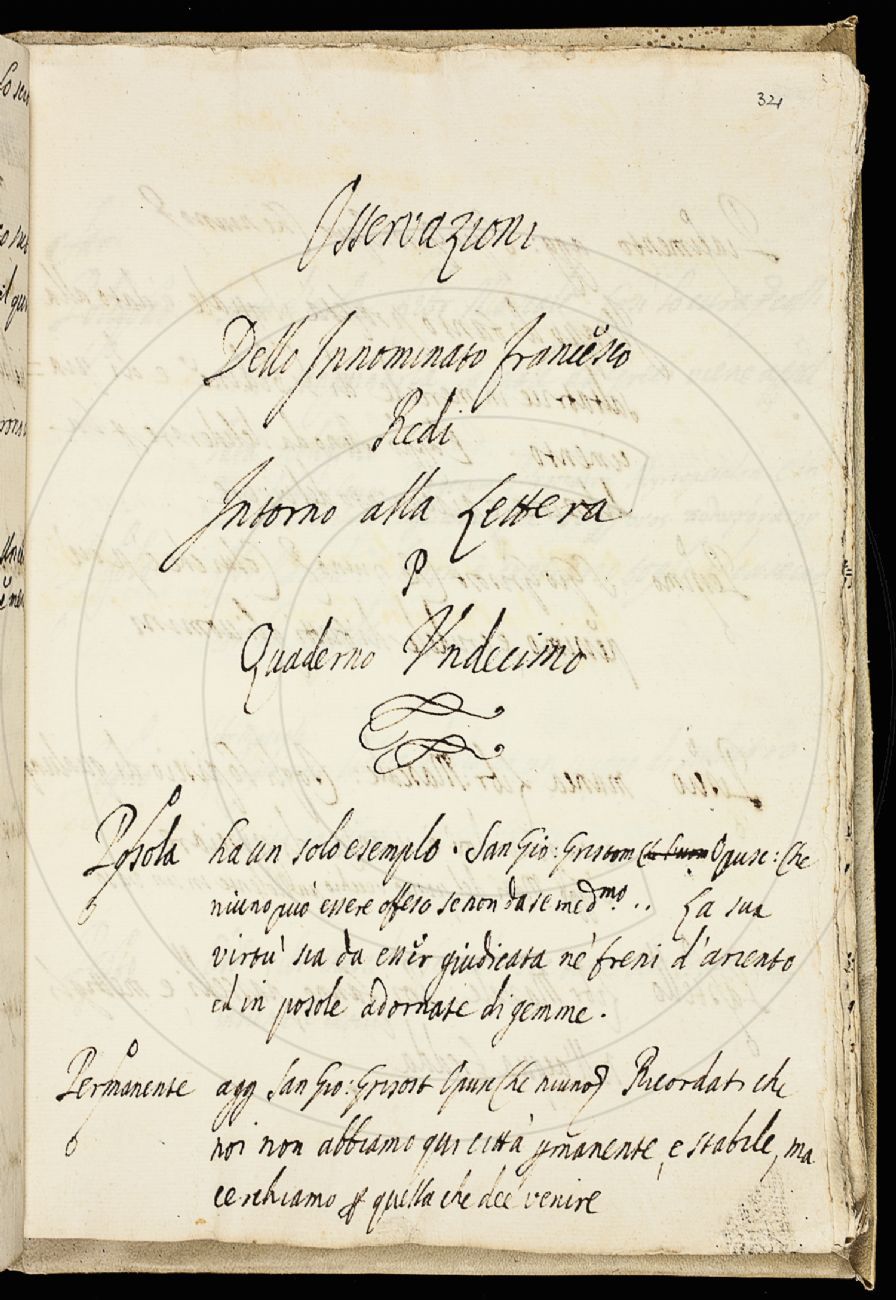 321
Osservazioni
Dello Innominato Francesco
Redi
Intorno alla Lettera
P
Quaderno Undecimo
Posola ha un solo esempio. San Gio: Grisostom Opusc: Che
niuno può essere offeso se non da se med.mo .. La sua
virtù sia da esser giudicata nè freni d'ariento
ed in posole adornate di gemme.
Permanente agg San Gio: Grisost Opusc Che niuno Ricordati che
noi non abbiamo qui città pmanente, e stabile, ma
cerchiamo p quella che dee venire